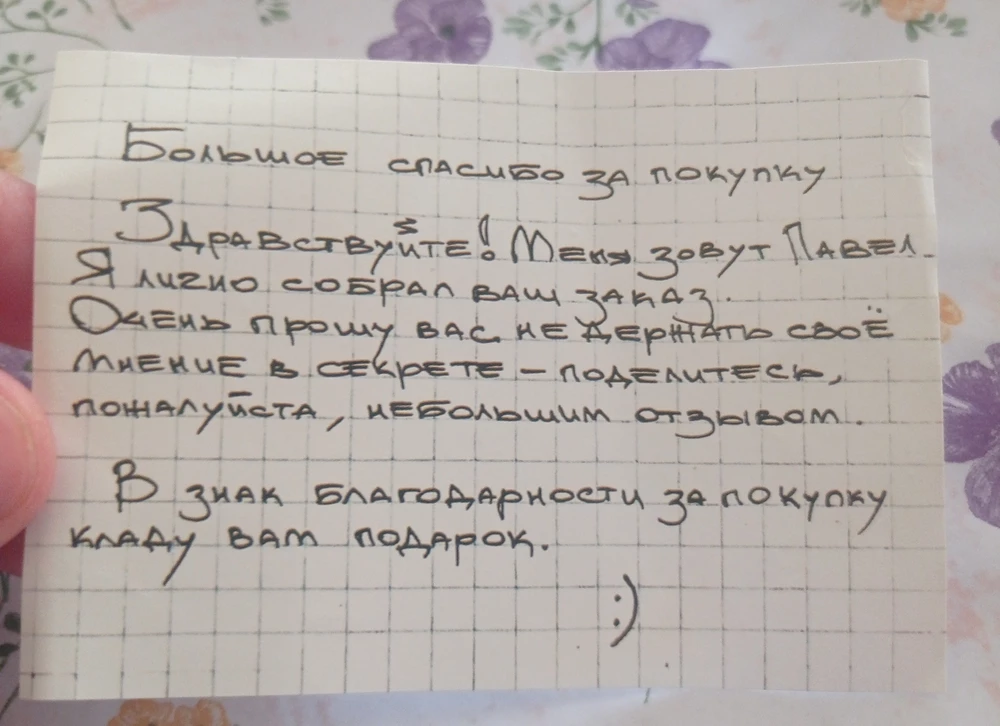 Большое спасибо за покупку
Здравствуйте! Меня зовут Павел.
Я лично собрал ваш заказ.
Очень прошу вас не держать своё
мнение в секрете – поделитесь,
пожалуйста, небольшим отзывом.
В знак благодарности за покупку
кладу вам подарок.
:)